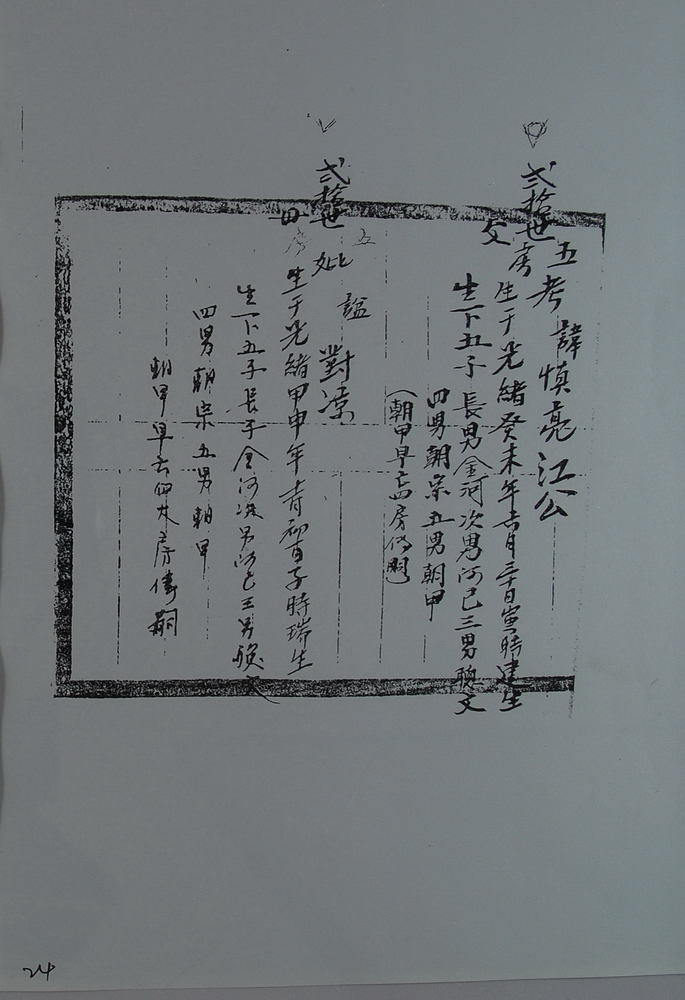 弍拾世五考諱慎亮江公
父房生于光緒癸未年六月三十日寅時建生
生下五子長男金河次男阿已三男聰文
四男朝宗五男朝甲
(朝甲早亡四房傳嗣)
弍拾世妣諡對涼
五
毋房生于光緒甲申年 月初 日子時瑞生
生下五子長子金河次男阿已三男 文
四男朝宗五男朝甲
朝甲早亡四大房傳嗣
24